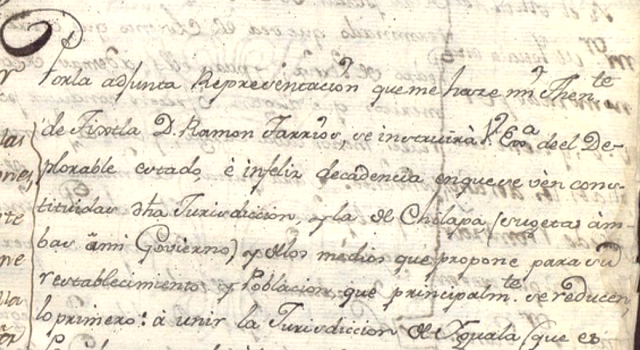 Por la adjunta Representacion que me haze mi Then.te
de Tixtla D. Ramon Tarrios, se instruirà V. Ex.a de el De-
plorable estado, è infeliz decadencia en que se vèn cons-
tituidas dha Jurisdiccion, y la de Chilapa (sugetas àm-
bas à mi Govierno) y de los mèdios que propone para su
restablecimiento y Poblacion, que principalm.te se reducen,
lo primero: à unir la Jurisdiccion de Yguala (que es